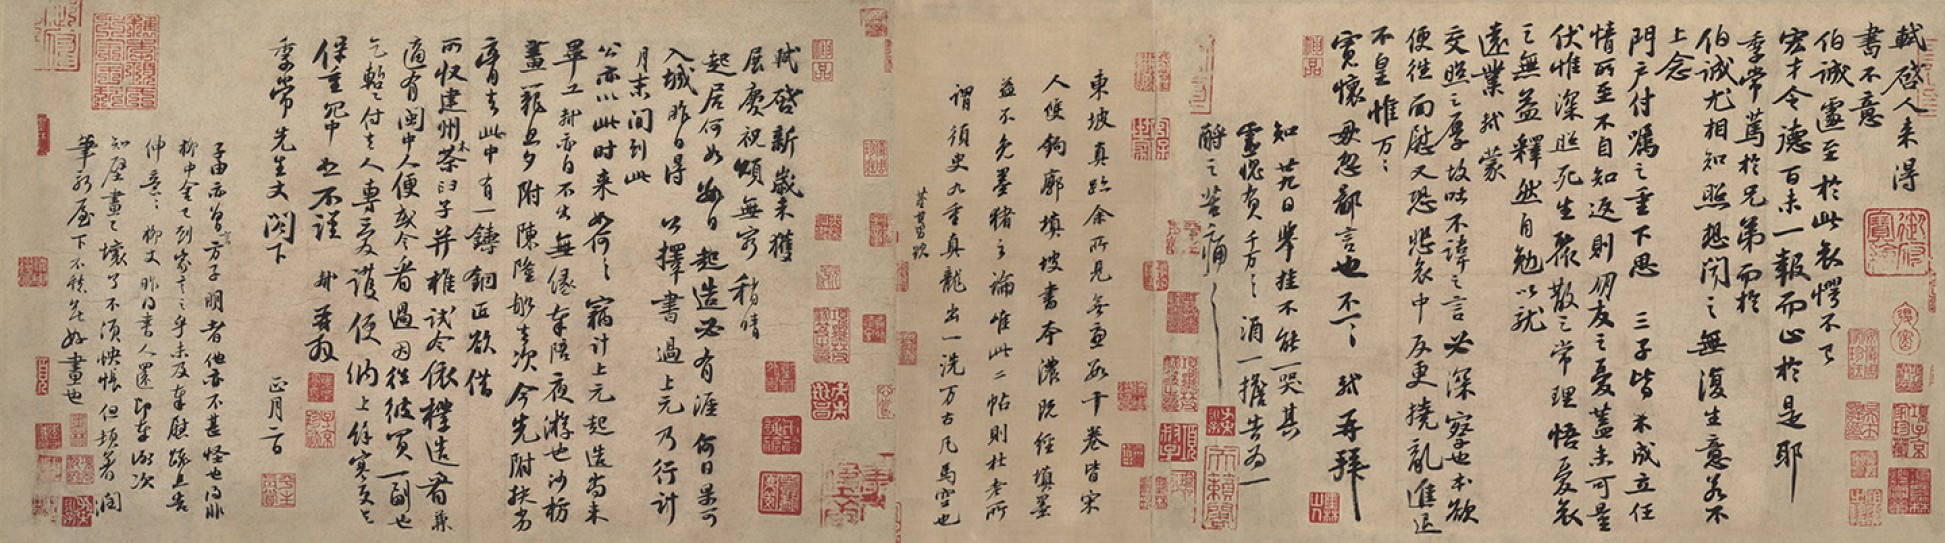 軾啓人來得
書不意
伯誠遽至於此哀愕不已
宏才令德百未一報而止於是耶
季常篤於兄弟而於
伯誠尤相知照想聞之無復生意若不
上念
門戶付囑之重下思三子皆未成立任
情所至不自知返則朋友之憂蓋未可量
伏惟深照死生聚散之常理悟憂哀
之無益釋然自勉以就
遠業軾蒙
交照之厚故吐不諱之言必深察也本欲
便往面慰又恐悲哀中反更撓亂進退
不皇惟萬萬
寬懷毋忽鄙言也不一一軾再拜
知廿九日舉掛不能一哭其
靈愧負千萬千萬酒一擔告為一
酹之苦痛苦痛
東坡真跡余所見無慮數十卷皆宋
人雙鉤廓填坡書本濃既經填墨
益不免墨豬之論唯此二帖則杜老所
謂須臾九重真龍出一洗万古凡馬空也
董其昌跋
軾啓新歲未獲
展慶祝頌無窮稍晴
起居何如數日起造必有涯何日果可
入城昨日得公擇書過上元乃行計
月末間到此
公亦以此時來如何如何竊計上元起造尚未
畢工軾亦自不出無緣奉陪夜游也沙枋
畫籠旦夕附陳隆船去次今先附扶劣
膏去此中有一鑄銅匠欲借
所收建州木茶臼子并椎試令依樣造看兼
適有閩中人便或令看過因往彼買一副也
乞暫付去人專愛護便納上餘寒更乞
保重冗中恕不謹軾再拜
季常先生丈閣下正月二日
子由亦曾言方子明者他亦不甚怪也得非
柳中舍已到家言之乎未及奉慰疏且告
伸意伸意柳丈昨得書人還即奉謝次
知壁畫已壞了不須怏悵但頓著潤
筆新屋下不愁無好畫也